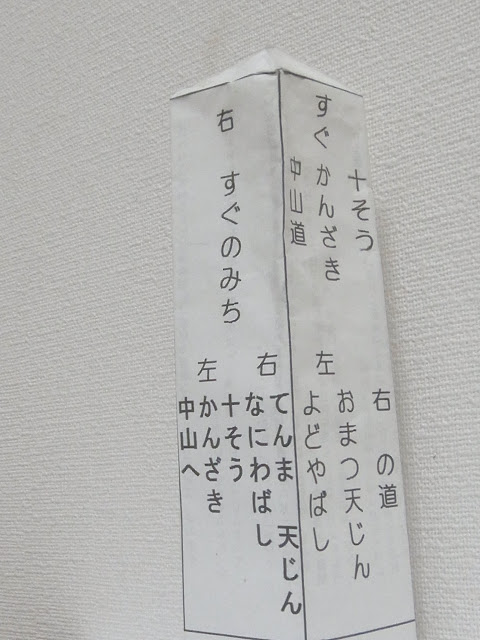 十そう
すぐ かんざき
中山道
右 の道
おまつ天じん
左 よどやばし
右 すぐのみち
右
てんま 天じん
なにわばし
左
十そう
かんざき
中山へ